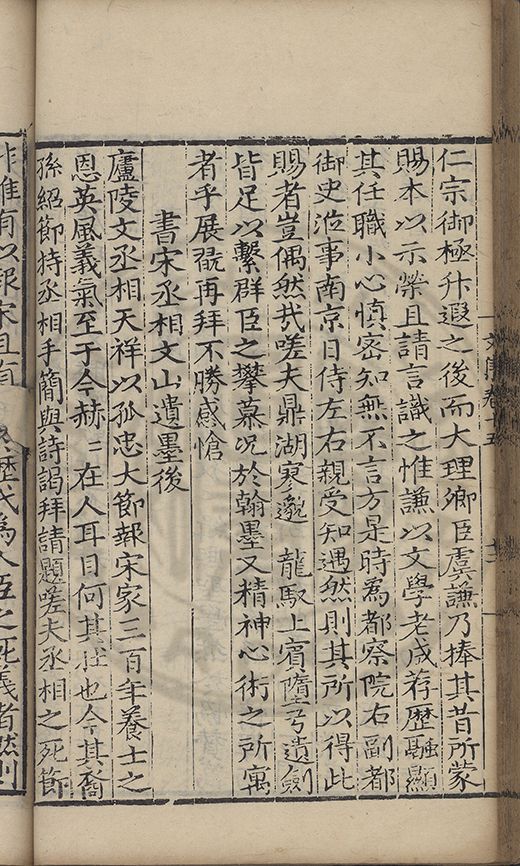 仁宗御極升遐之後而大理卿臣虞謙乃捧其昔所蒙
賜本以示榮且請言識之惟謙以文學老成荐歷融顯
其任職小心慎密知無不言方是時為都察院右副都
御史涖事南京日侍左右親受知遇然則其所以得此
賜者豈偶然哉嗟夫鼎湖寥邈龍馭上賓墮弓遺劍
皆足以繫群臣之攀慕况於翰墨又精神心術之所寓
者乎展翫再拜不勝感愴
書宋丞相文山遺墨後
廬陵文丞相天祥以孤忠大節報宋家三百年養士之
恩英風義氣至于今赫〻在人耳目何其壯也今其裔
孫絕節持丞相手簡與詩謁拜請題嗟夫丞相之死節
歷代為人臣之死義者然則